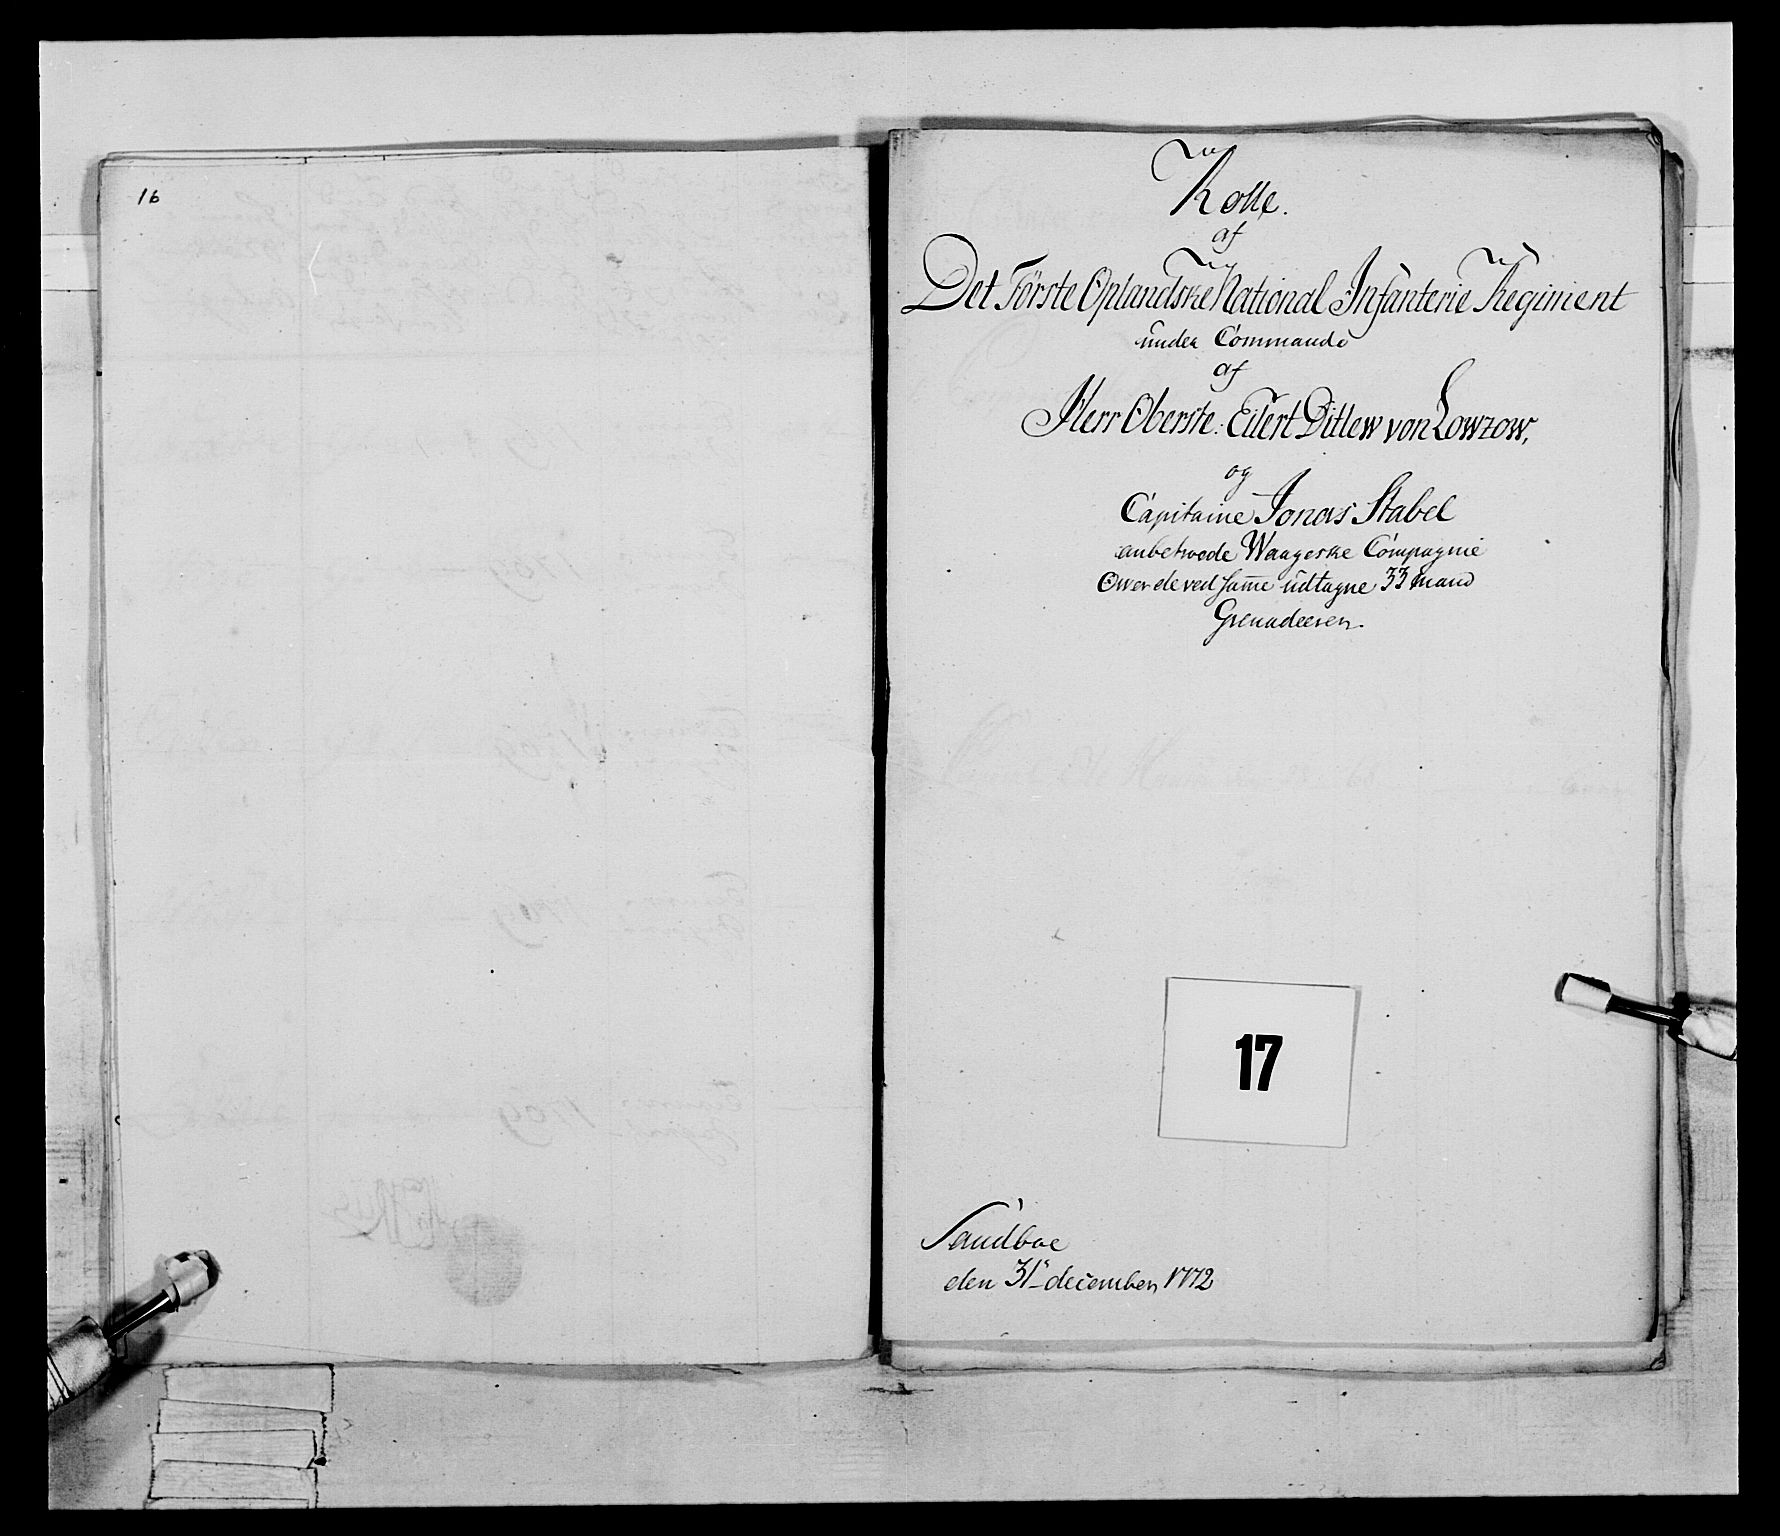 16
Rolle.
af
Det Förste Oplandske National Infanterie Regiment
under Commando
af
Herr Oberste Eilert Ditlew von Lowzow,
og
Capitaine Jonas Stabel
anbetroede Waageske Compagnie
Over de ved same udtagne 33 mand
Grenadeerer.
17
Sandboe
den 31 december 1772